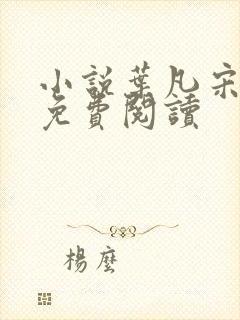 小說葉凡宋
免費閱讀
楊塵